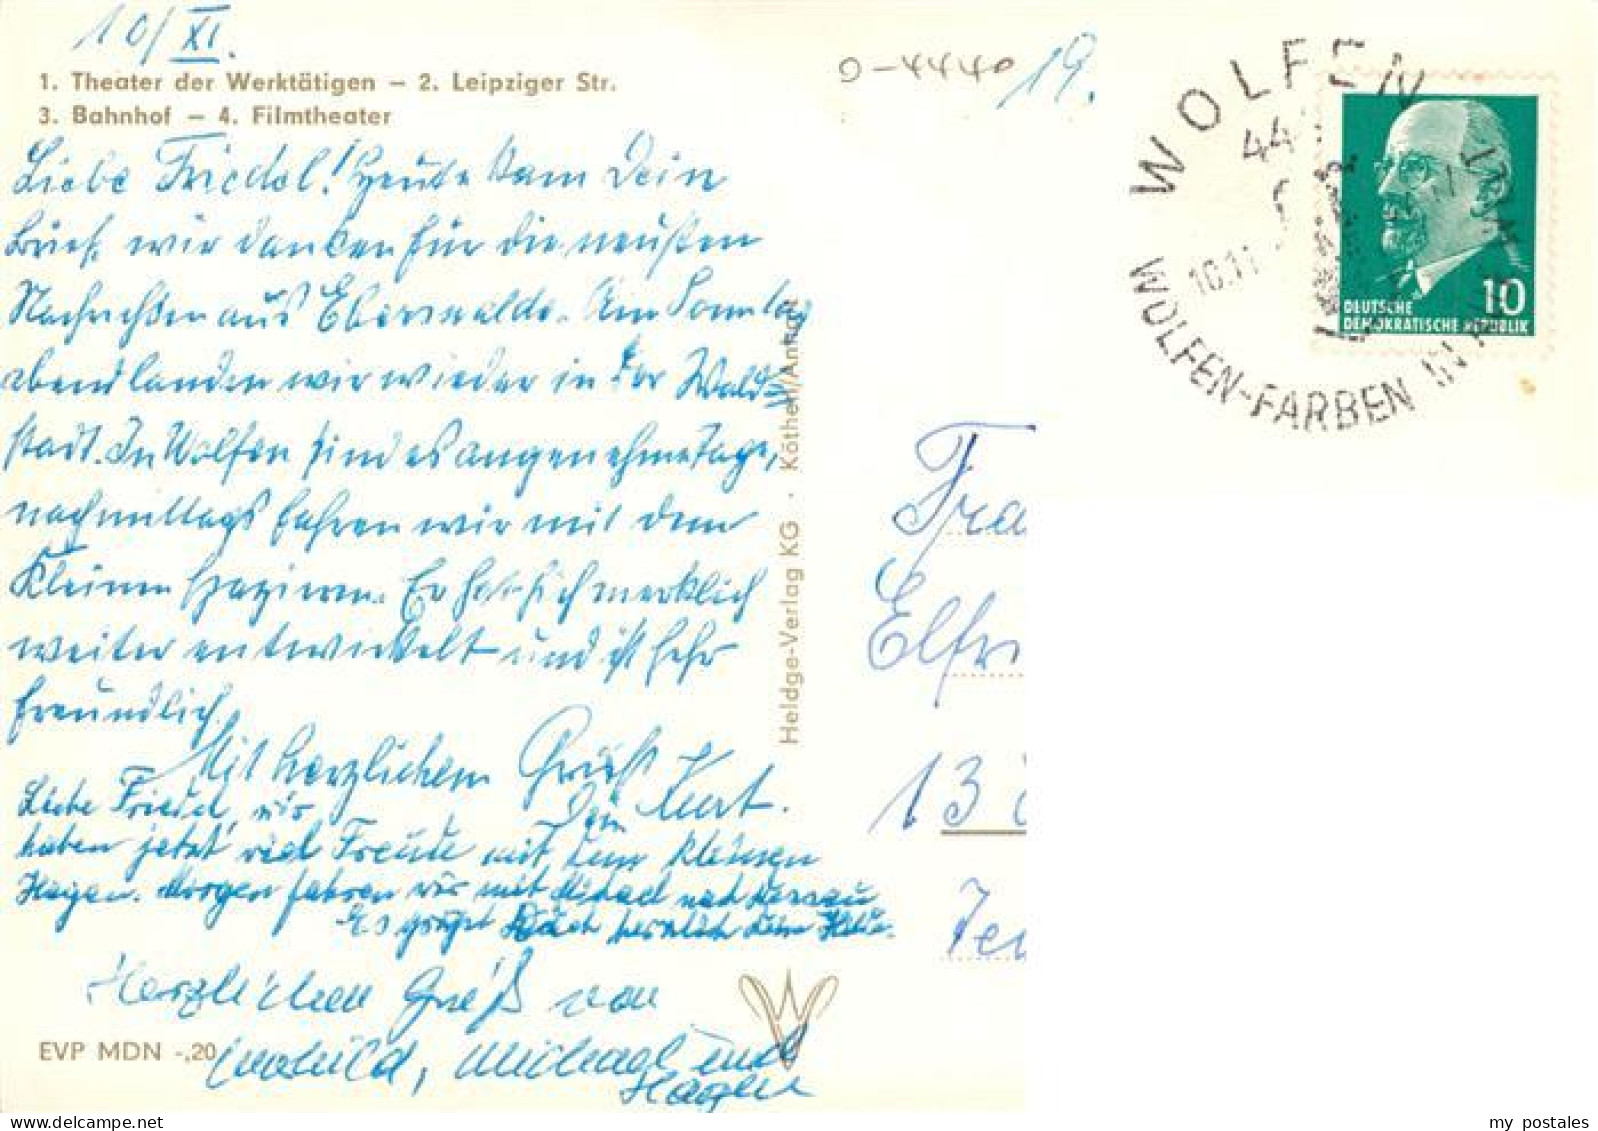 10/XI.
1. Theater der Werktätigen – 2. Leipziger Str.
3. Bahnhof – 4. Filmtheater
O-4440
19.
WOLFEN
44
10.11
WOLFEN-FARBEN IN
10
DEUTSCHE
DEMOKRATISCHE REPUBLIK
Liebe Friedel! Heute kam Dein
Brief, wir danken für die neusten
Nachrichten aus Eberswalde. Am Sonntag
abend landen wir wieder in der Wald-
stadt. In Wolfen sind es angenehme Tage,
nachmittags fahren wir mit dem
Kleinen spazieren. Er hat sich merklich
weiter entwickelt und ist sehr
freundlich.
Mit herzlichem Gruß
Dein Kurt.
Liebe Friedel, wir
haben jetzt viel Freude mit dem kleinen
Hagen. Morgen fahren wir mit Michael nach Dessau
Es grüßt Dich herzlich
Herzlichen Gruß von
Michael und
Hagen
Heldge-Verlag KG · Köthen/Anhalt
EVP MDN -,20
Fra
Elfri
13
my postales